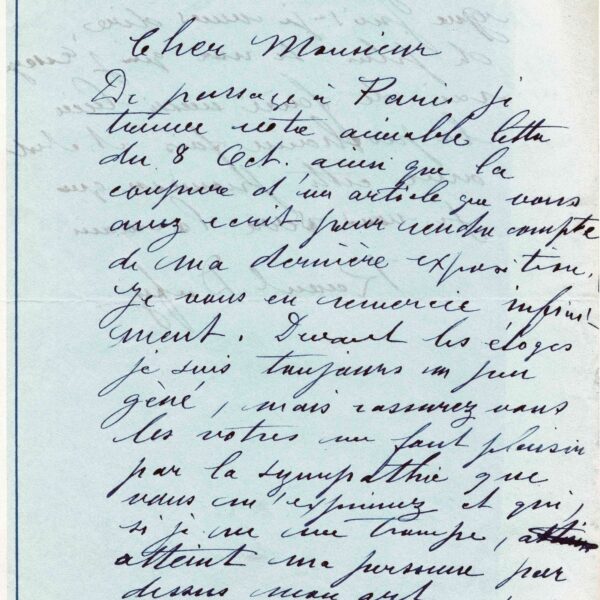 Cher Monsieur
De passage à Paris je
trouve votre aimable lettre
du 8 Oct. ainsi que la
coupure d'un article que vous
avez ecrit pour rendre compte
de ma dernière exposition.
Je vous en remercie infini-
ment. Devant les éloges
je suis toujours un peu
gêné, mais rassurez vous
les votres me font plaisir
par la sympathie que
vous m'exprimez et qui,
si je ne me trompe,
atteint ma personne par
dessus mon art